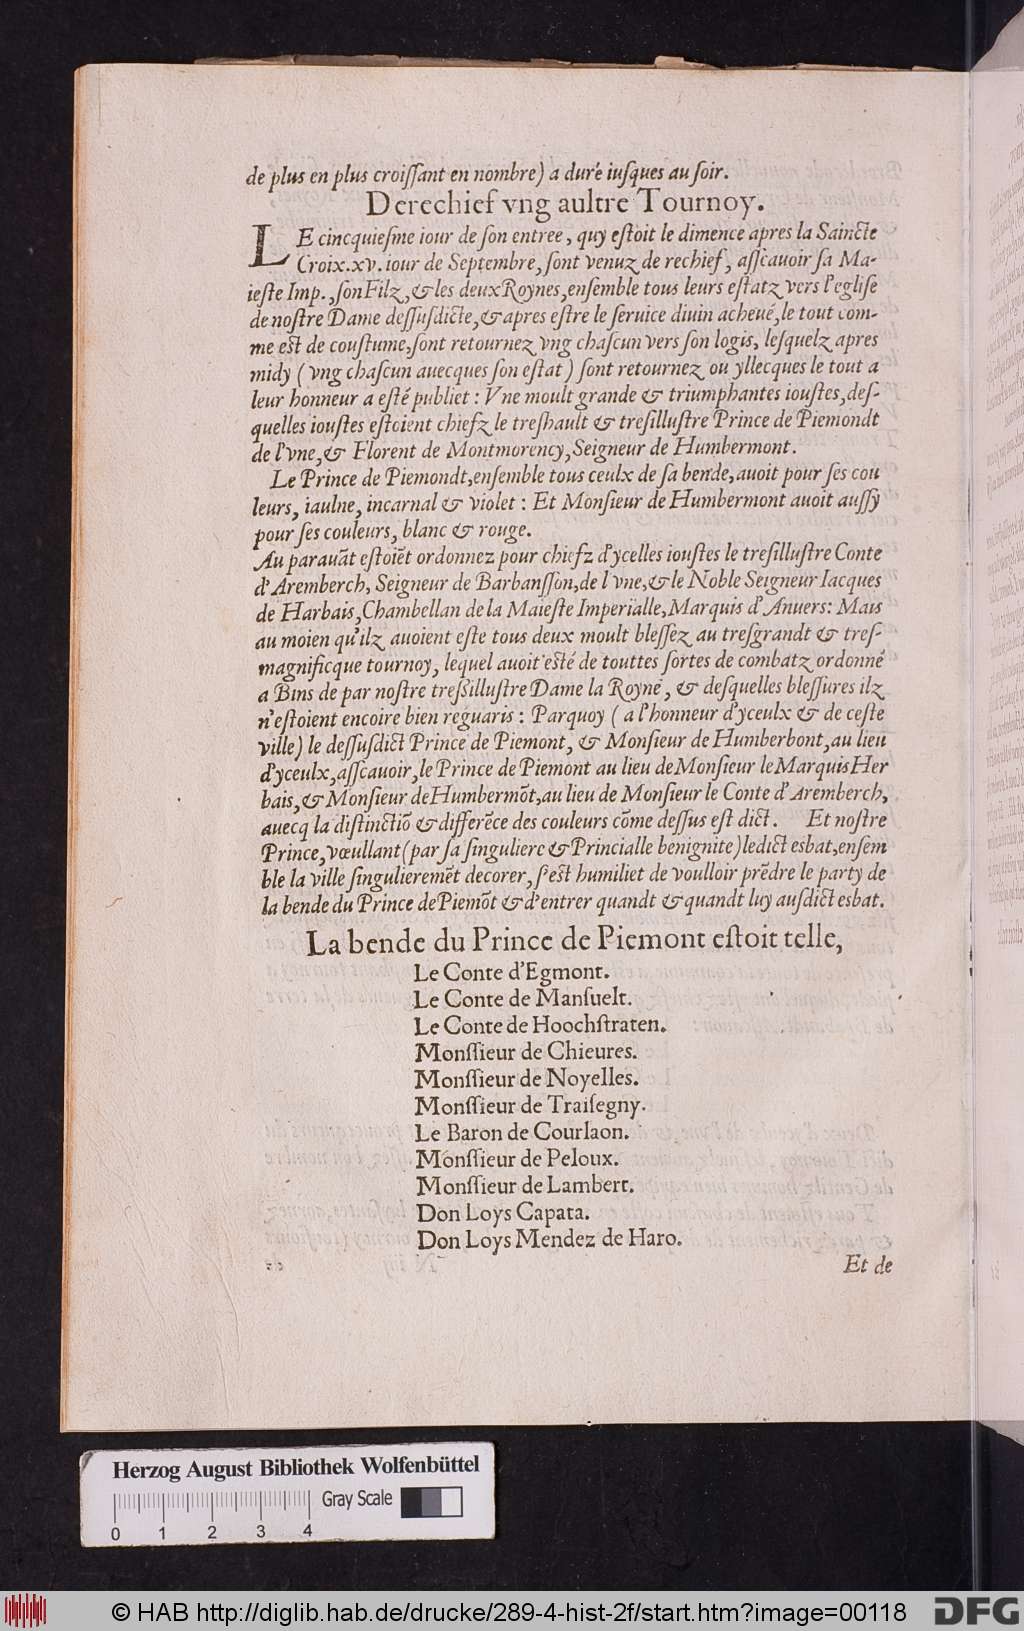 de plus en plus croiſſant en nombre) a duré iuſques au ſoir.
Derechief vng aultre Tournoy.
LE cincquieſme iour de ſon entree, quy eſtoit le dimence apres la Saincte
Croix.xv. iour de Septembre, ſont venuz de rechief, aſſcauoir ſa Ma-
ieſte Imp., ſon Filz, & les deux Roynes, enſemble tous leurs eſtatz vers l'egliſe
de noſtre Dame deſſuſdicte, & apres eſtre le ſeruice diuin acheué, le tout com-
me eſt de couſtume, ſont retournez vng chaſcun vers ſon logis, leſquelz apres
midy (vng chaſcun auecques ſon eſtat) ſont retournez ou yllecques le tout a
leur honneur a eſté publiet : Vne moult grande & triumphantes iouſtes, deſ-
quelles iouſtes eſtoient chiefz le treſhault & treſilluſtre Prince de Piemondt
de l'vne, & Florent de Montmorency, Seigneur de Humbermont.
Le Prince de Piemondt, enſemble tous ceulx de ſa bende, auoit pour ſes cou
leurs, iaulne, incarnal & violet : Et Monſieur de Humbermont auoit auſſy
pour ſes couleurs, blanc & rouge.
Au parauāt eſtoiēt ordonnez pour chiefz d'ycelles iouſtes le treſilluſtre Conte
d'Aremberch, Seigneur de Barbanſſon, de l'vne, & le Noble Seigneur Iacques
de Harbais, Chambellan de la Maieſte Imperialle, Marquis d'Anuers: Mais
au moien qu'ilz auoient eſte tous deux moult bleſſez au treſgrandt & treſ-
magnificque tournoy, lequel auoit eſté de touttes ſortes de combatz ordonné
a Bins de par noſtre treſſilluſtre Dame la Royne, & deſquelles bleſſures ilz
n'eſtoient encoire bien reguaris : Parquoy (a l'honneur d'yceulx & de ceſte
ville) le deſſuſdict Prince de Piemont, & Monſieur de Humberbont, au lieu
d'yceulx, aſſcauoir, le Prince de Piemont au lieu de Monſieur le Marquis Her
bais, & Monſieur de Humbermōt, au lieu de Monſieur le Conte d'Aremberch,
auecq la diſtinctiō & differēce des couleurs cōme deſſus eſt dict. Et noſtre
Prince, vœullant (par ſa ſinguliere & Princialle benignite) ledict esbat, enſem
ble la ville ſingulieremēt decorer, ſ'eſt humiliet de voulloir prēdre le party de
la bende du Prince de Piemōt & d'entrer quandt & quandt luy auſdict esbat.
La bende du Prince de Piemont eſtoit telle,
Le Conte d'Egmont.
Le Conte de Manſuelt.
Le Conte de Hoochſtraten.
Monſſieur de Chieures.
Monſſieur de Noyelles.
Monſſieur de Traiſegny.
Le Baron de Courlaon.
Monſſieur de Peloux.
Monſſieur de Lambert.
Don Loys Capata.
Don Loys Mendez de Haro.
Et de
Herzog August Bibliothek Wolfenbüttel
Gray Scale
0 1 2 3 4
© HAB http://diglib.hab.de/drucke/289-4-hist-2f/start.htm?image=00118
DFG